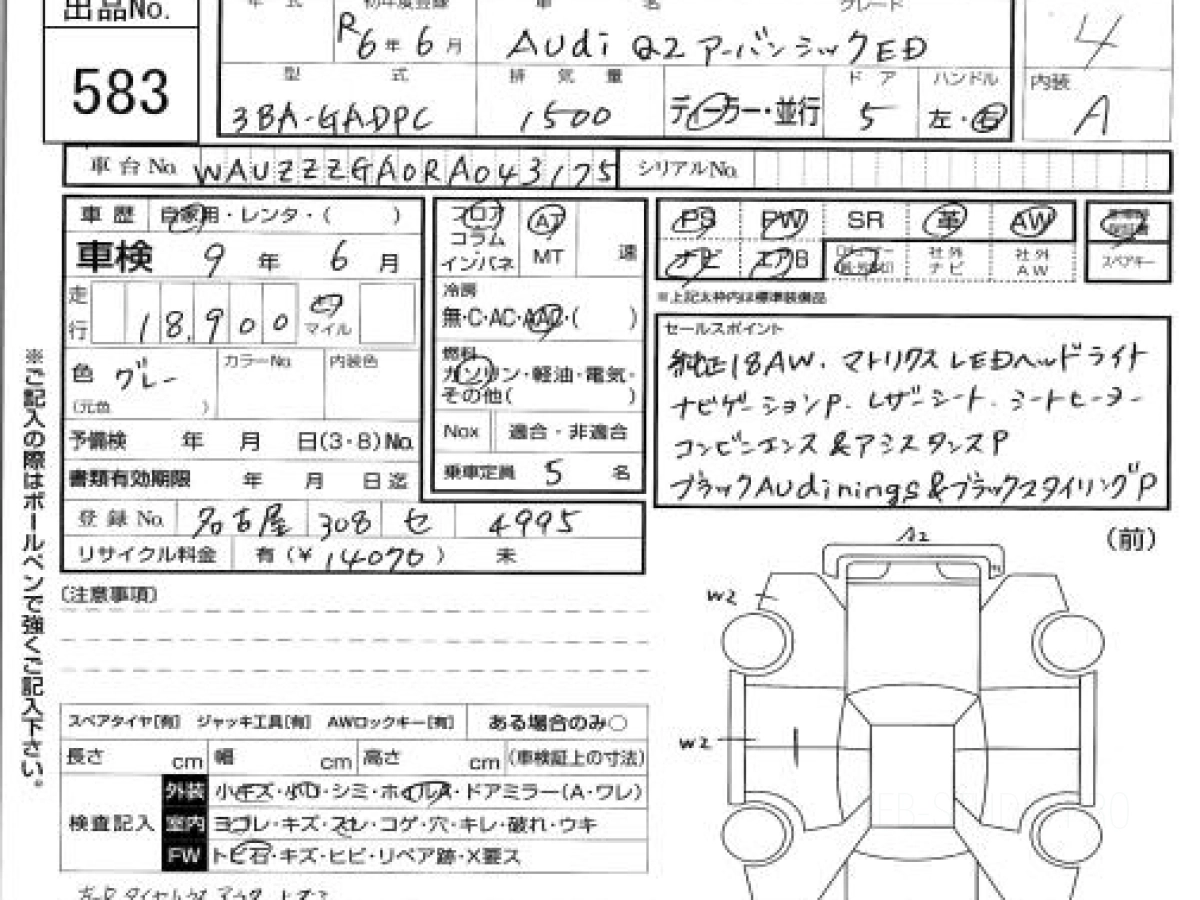 出品No.
583
年式 初年度登録 車名 グレード
R6年6月 Audi Q2 アーバンシックED
4
型式 排気量 ドア ハンドル 内装
3BA-GADPC 1500 ディーラー・並行 5 左・右 A
車台No. WAUZZZGA0RA043175 シリアルNo.
車歴 自家用・レンタ・( )
車検 9年 6月
走行 18,900 マイル
色 グレー カラーNo. 内装色
(元色 )
予備検 年 月 日(3・8)No.
書類有効期限 年 月 日迄
登録No. 名古屋 308 セ 4995
リサイクル料金 有(¥14070) 未
フロア
コラム
インパネ
AT
MT 速
冷房
無・C・AC・AAC・( )
燃料
ガソリン・軽油・電気・
その他( )
Nox 適合・非適合
乗車定員 5 名
PS PW SR 革 AW
ナビ エアB 社外ナビ 社外AW
スペアキー
※上記太枠内は標準装備品
セールスポイント
純正18AW. マトリクスLEDヘッドライト
ナビゲーションP. レザーシート. シートヒーター
コンビニエンス&アシスタンスP
ブラックAudirings&ブラックスタイリングP
※ご記入の際はボールペンで強くご記入下さい。
(注意事項)
(前)
A2
W2
W2
スペアタイヤ[有] ジャッキ工具[有] AWロックキー[有] ある場合のみ○
長さ cm 幅 cm 高さ cm (車検証上の寸法)
検査記入
外装 小キズ・小凹・シミ・ホイルA・ドアミラー(A・ワレ)
室内 ヨゴレ・キズ・スレ・コゲ・穴・キレ・破れ・ウキ
FW トビ石・キズ・ヒビ・リペア跡・X要ス